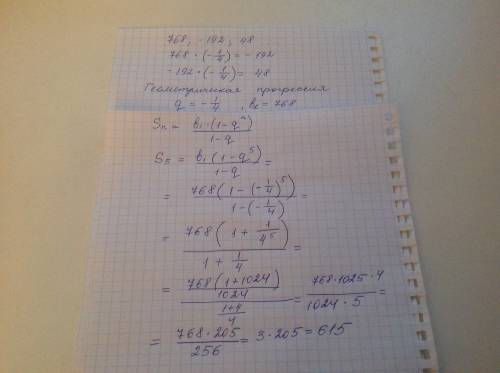 768, -192, 48
768 · (-1/4) = -192
-192 · (-1/4) = 48
Геометрическая прогрессия
q = -1/4 , b₁ = 768
Sn = b₁ · (1-qⁿ) / 1-q
S5 = b₁ (1-q⁵) / 1-q =
= 768(1-(-1/4)⁵) / 1-(-1/4) =
= 768(1 + 1/4⁵) / 1 + 1/4 =
= 768(1+1024) / 1024 / 1+4 / 4 = 768·1025·4 / 1024·5 =
= 768·205 / 256 = 3·205 = 615